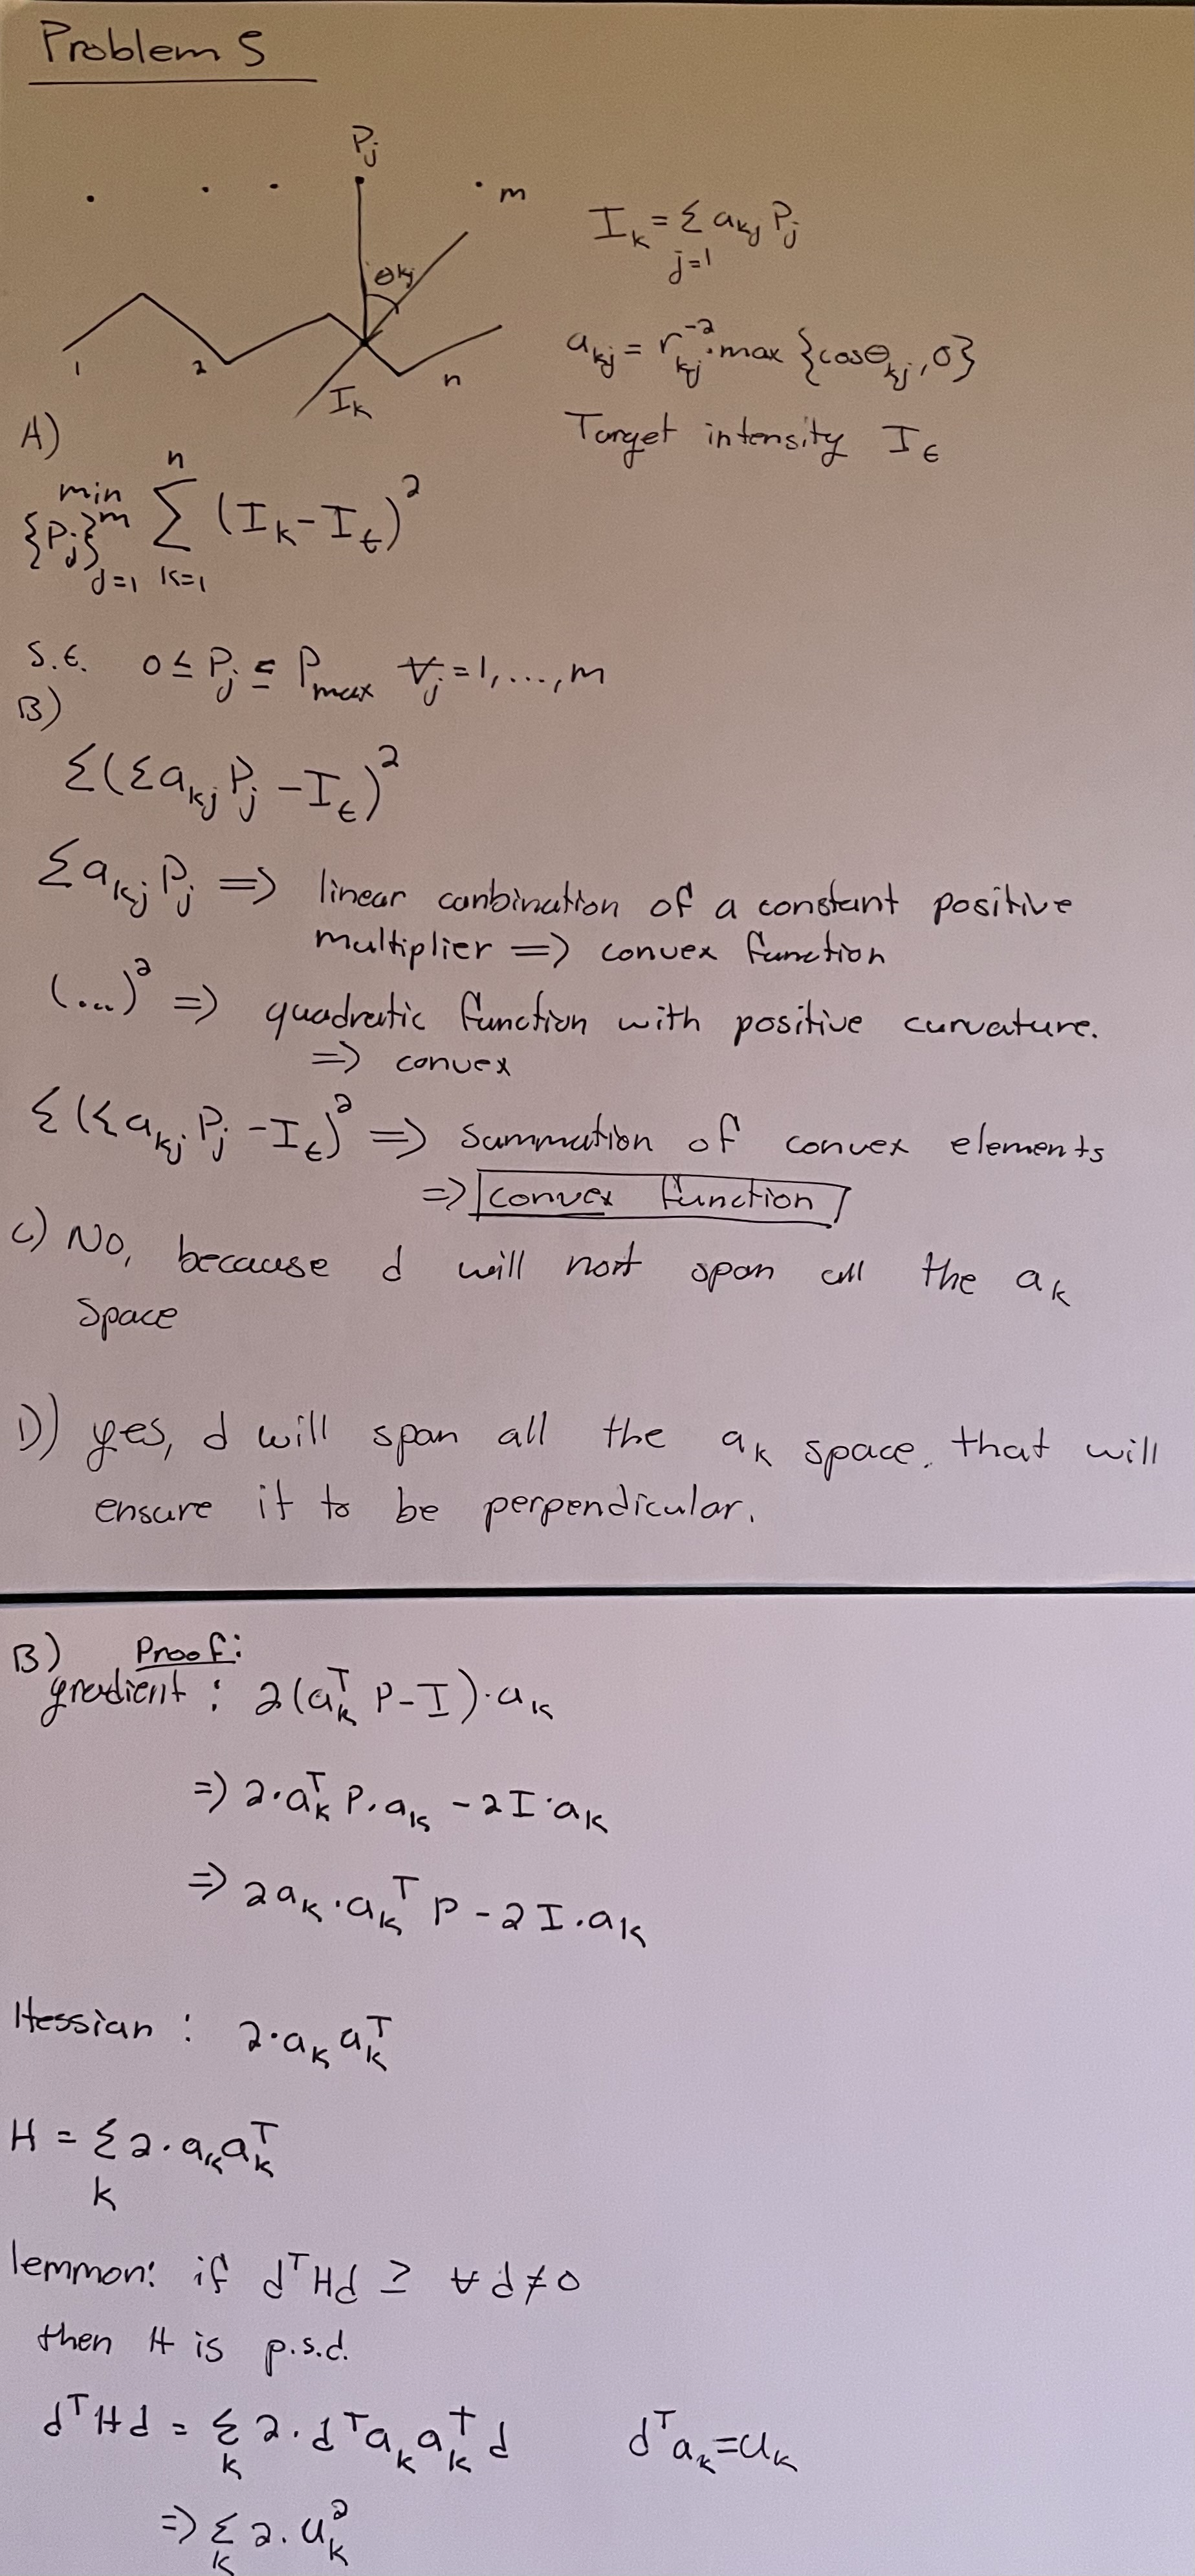 Problem 5
P_j
m
θ_kj
1
2
n
I_k
I_k = Σ_{j=1} a_kj P_j
a_kj = r_kj^{-2} · max {cosθ_kj, 0}
Target intensity I_t
A)
min_{{P_j}_{j=1}^m} Σ_{k=1}^n (I_k - I_t)^2
s.t. 0 ≤ P_j ≤ P_max ∀_j = 1, ..., m
B)
Σ(Σa_kj P_j - I_t)^2
Σa_kj P_j => linear conbination of a constant positive
multiplier => convex function
(...)^2 => quadratic function with positive curvature.
=> convex
Σ(Σa_kj P_j - I_t)^2 => summation of convex elements
=> convex function
C) No, because d will not span all the a_k
space
D) yes, d will span all the a_k space. that will
ensure it to be perpendicular.
B) Proof:
gradient : 2(a_k^T P - I) · a_k
=> 2 · a_k^T P · a_k - 2I · a_k
=> 2a_k · a_k^T P - 2I · a_k
Hessian : 2 · a_k a_k^T
H = Σ_k 2 · a_k a_k^T
lemmon: if d^T H d ≥ ∀ d ≠ 0
then H is p.s.d.
d^T H d = Σ_k 2 · d^T a_k a_k^T d
d^T a_k = u_k
=> Σ_k 2 · u_k^2